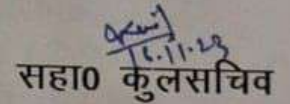 16.11.23
सहा0 कुलसचिव